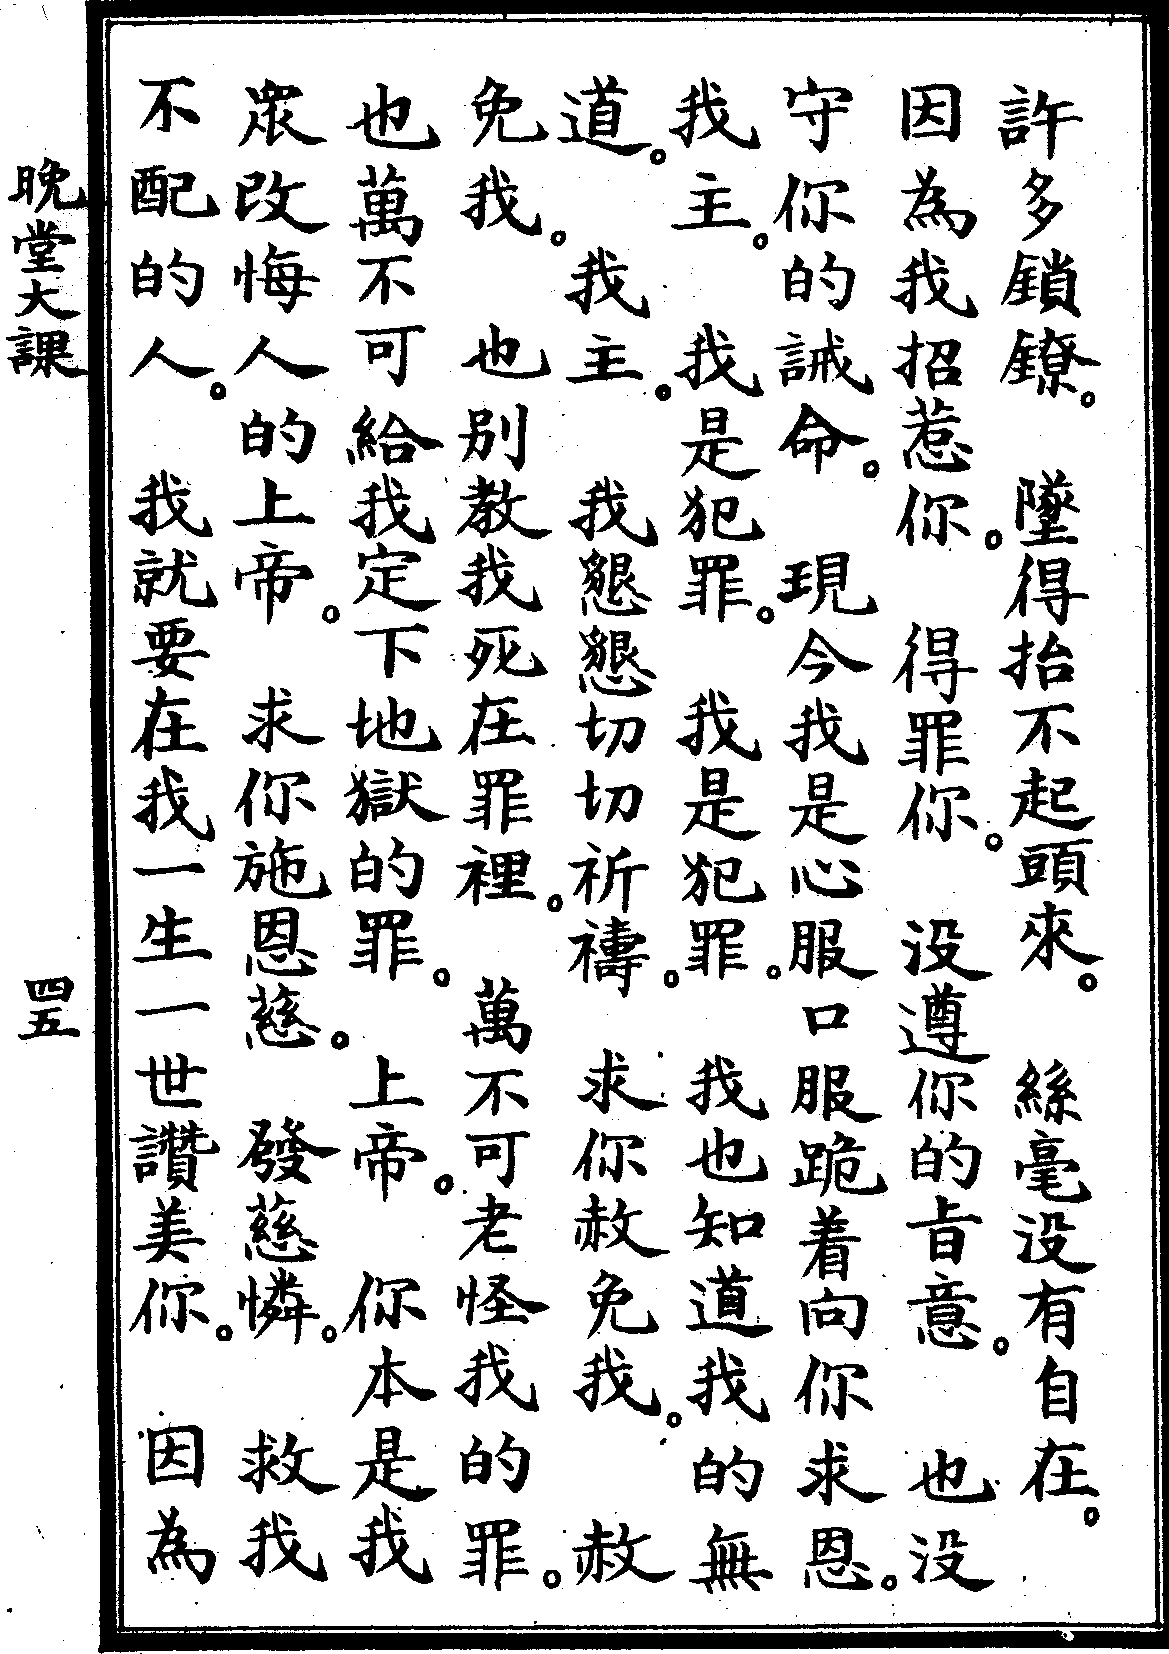 許多鎖鐐。　墜得抬不起頭來。　絲毫没有自在。
因為我招惹你。　得罪你。　没遵你的旨意。　也没
守你的誡命。　現今我是心服口服跪着向你求恩。
我主。　我是犯罪。　我是犯罪。　我也知道我的無
道。　我主。　我懇懇切切祈禱。　求你赦免我。　赦
免我。　也别教我死在罪裡。　萬不可老怪我的罪。
也萬不可給我定下地獄的罪。　上帝。　你本是我
衆改悔人的上帝。　求你施恩慈。　發慈憐。　救我
不配的人。　我就要在我一生一世讚美你。　因為
晚堂大課
四五